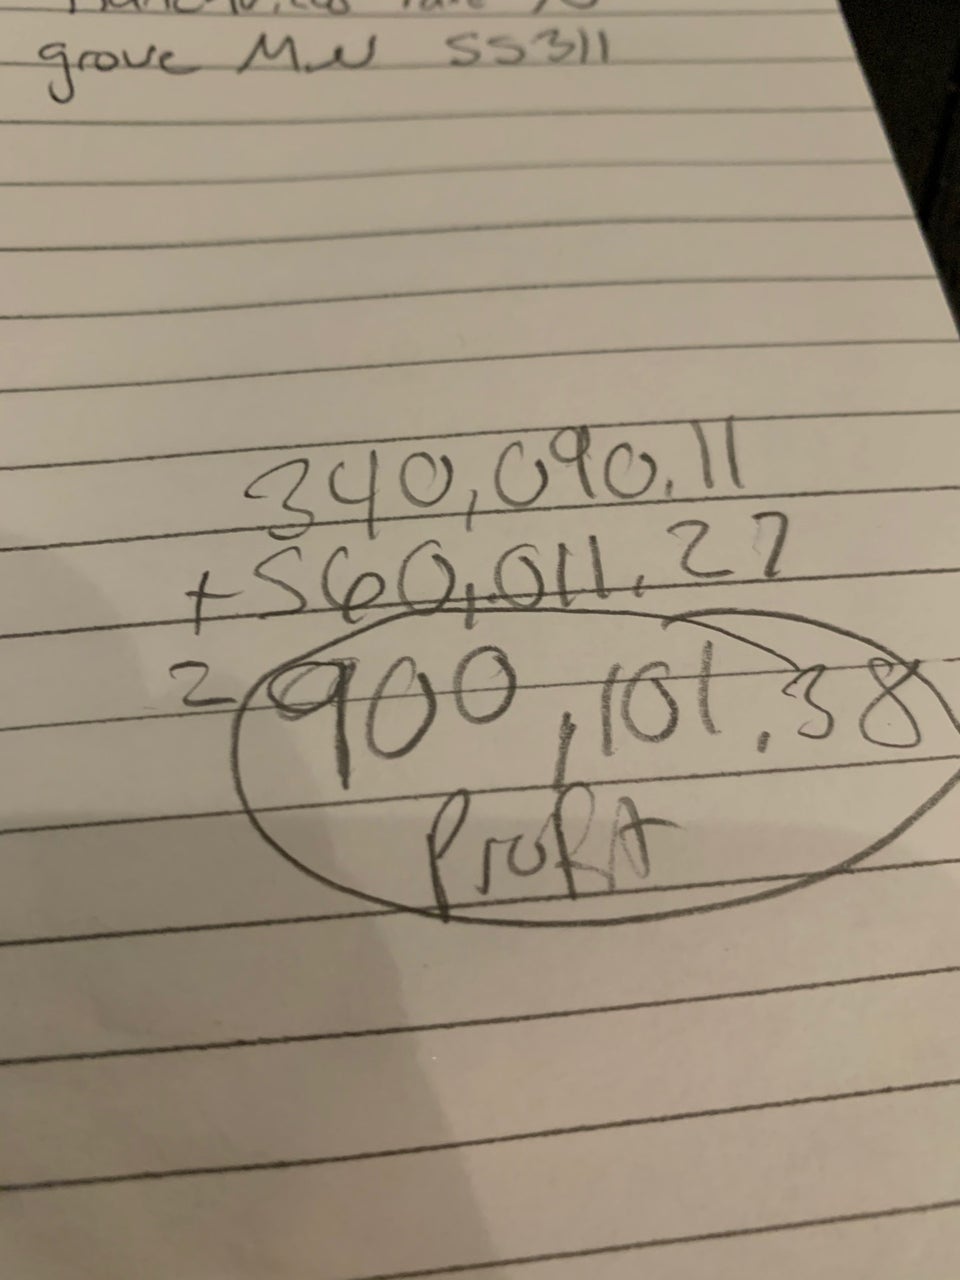 grove MN 55311
340,090.11
+560,011.27
= 900,101.38
Profit